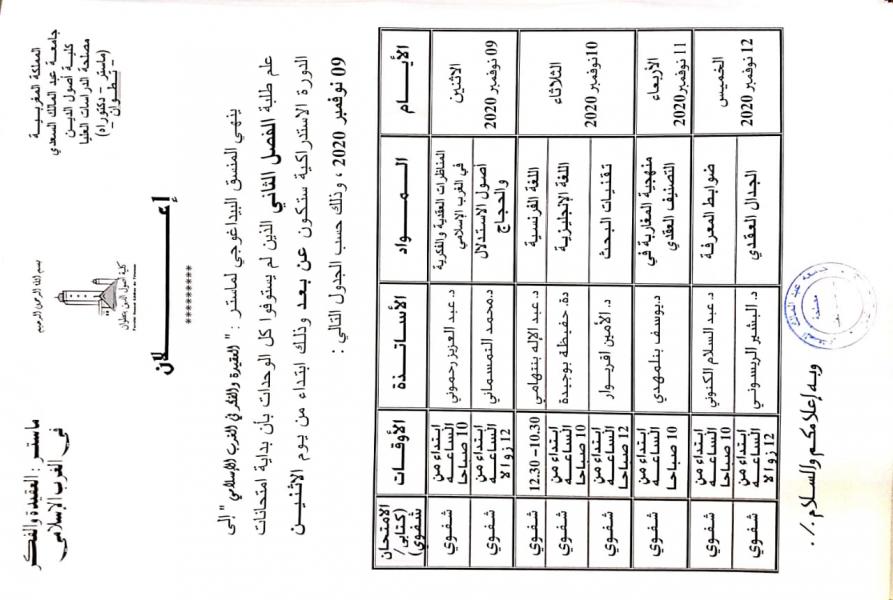 المملكة المغربيـــة
جامعة عبد المالك السعدي
كلية أصول الديـن
مصلحة الدراسات العليا
(ماستر - دكتوراه)
- تـطـوان -
بسم الله الرحمن الرحيم
كلية أصول الدين بتطوان
ماستـر : العقيدة والفكر
في الغرب الإسلامي
إعــــــــلان
*********
ينهي المنسق البيداغوجي لماستر : " العقيدة والفكر في الغرب الإسلامي " إلى
علم طلبة الفصل الثاني الذين لم يستوفوا كل الوحدات بأن بداية امتحانات
الدورة الاستدراكية ستكون عن بعد وذلك ابتداء من يوم الاثنيـن
09 نوفمبر 2020 ، وذلك حسب الجدول التالي :
الأيــام المــواد الأسـاتـذة الأوقـات الامتحان (كتابي/ شفوي)
الاثنين 09 نوفمبر 2020 المناظرات العقدية والفكرية في الغرب الإسلامي د. عبد العزيز رحموني ابتداء من الساعة 10 صباحا شفوي
أصول الاستدلال والحجاج د.محمد التمسماني ابتداء من الساعة 12 زوالا شفوي
الثلاثاء 10نوفمبر 2020 اللغة الفرنسية د. عبد الإله بنتهامي 10.30– 12.30 شفوي
اللغة الإنجليزية دة. حفيظة بوجيدة ابتداء من الساعة 10 صباحا شفوي
تقنيات البحث د. الأمين اقريوار ابتداء من الساعة 12 صباحا شفوي
الأربعاء 11 نوفمبر 2020 منهجية المغاربة في التصنيف العقدي د.يوسف بنلمهدي ابتداء من الساعة 10 صباحا شفوي
الخميس 12 نوفمبر 2020 ضوابط المعرفة د. عبد السلام الكنوني ابتداء من الساعة 10 صباحا شفوي
الجدال العقدي د. البشير الريسوني ابتداء من الساعة 12 زوالا شفوي
وبـه إعلامكـم والسـلام ./.